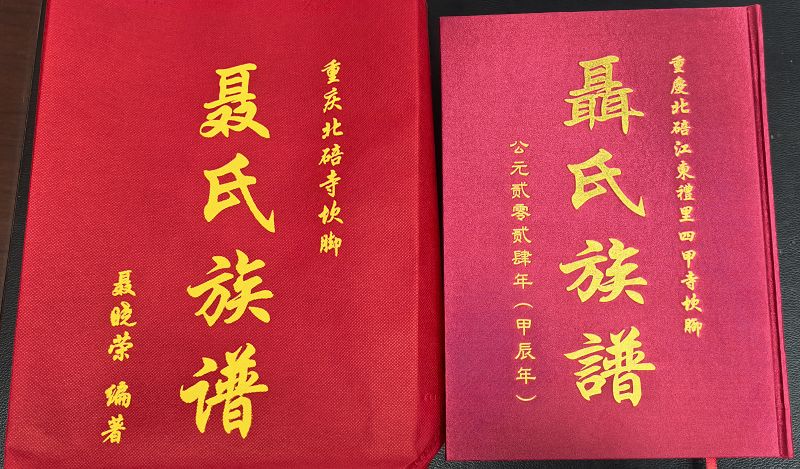 重庆北碚寺坎脚
聂氏族谱
聂晓荣 编著
重慶北碚江東禮里四甲寺坎腳
聶氏族譜
公元贰零贰肆年（甲辰年）